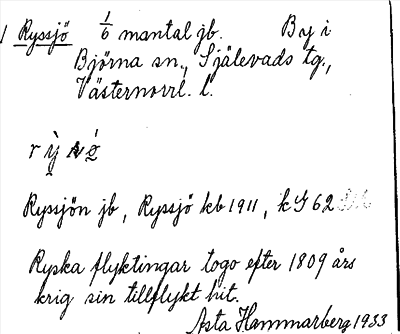 1 Ryssjö 1/6 mantal jb. By i
Björna sn., Själevads tg.,
Västernorrl. l.
Ryssjön jb, Ryssjö kb 1911, k G 62
Ryska flyktingar togo efter 1809 års
krig sin tillflykt hit.
Asta Hammarberg 1933